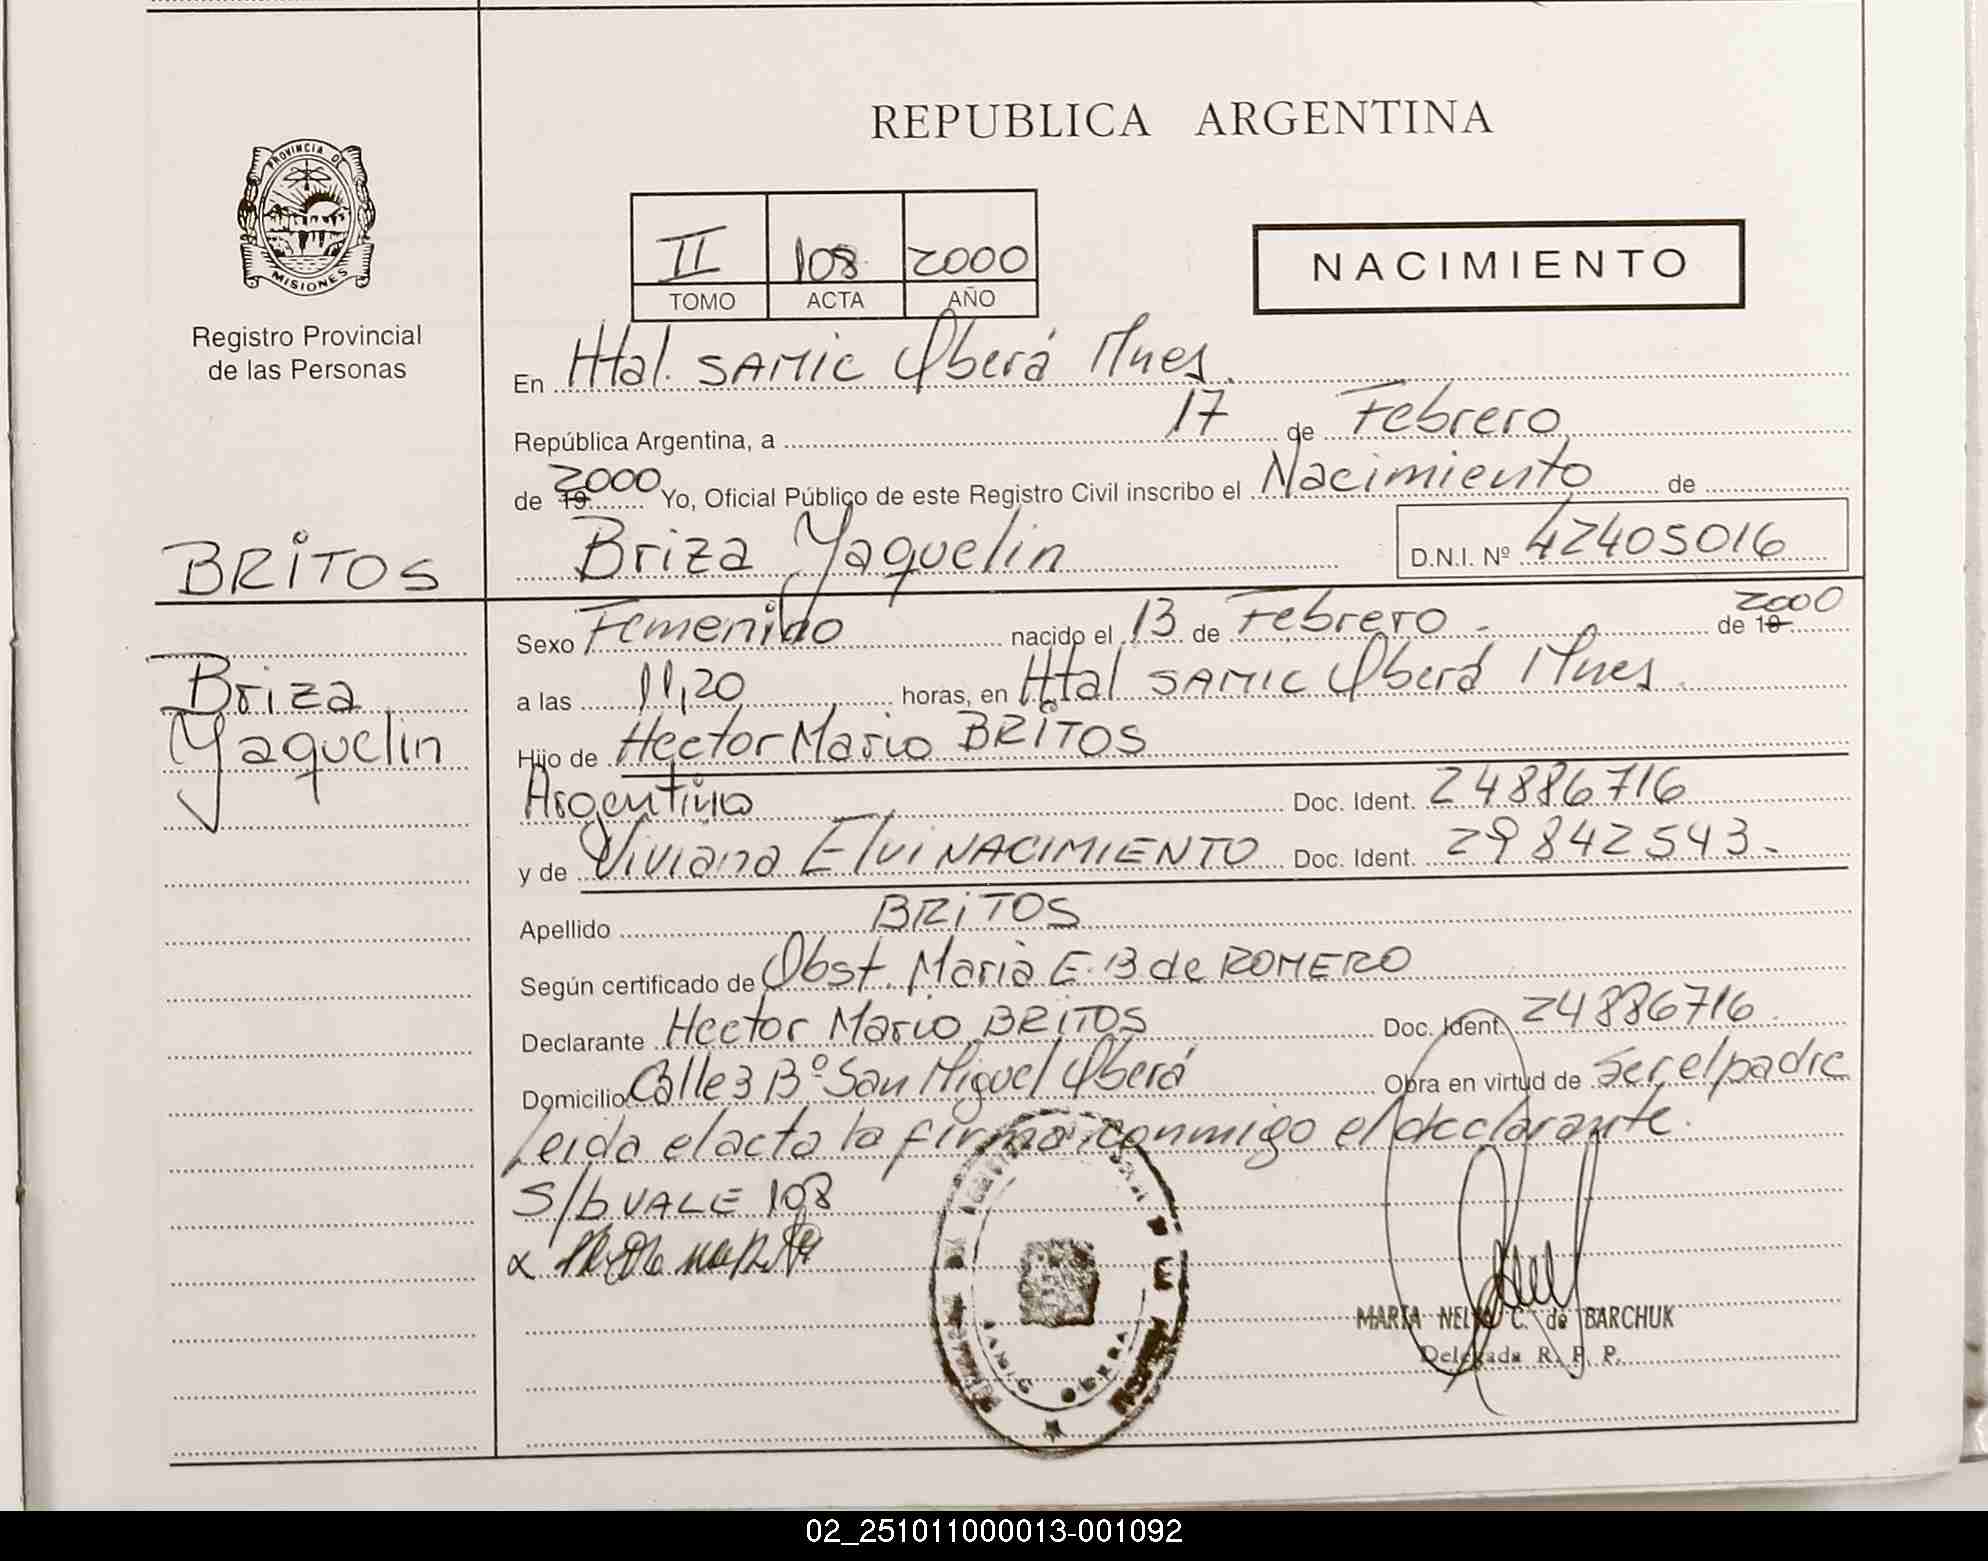 REPUBLICA ARGENTINA
PROVINCIA DE
MISIONES
Registro Provincial
de las Personas
II 108 2000
TOMO ACTA AÑO
NACIMIENTO
En Htal. SAMIC Oberá Mnes.
República Argentina, a 17 de Febrero
de 19 2000 Yo, Oficial Público de este Registro Civil inscribo el Nacimiento de
Briza Yaquelin D.N.I. Nº 42405016
BRITOS
Briza
Yaquelin
Sexo Femenino nacido el 13 de Febrero de 19 2000
a las 11,20 horas, en Htal SAMIC Oberá Mnes.
Hijo de Hector Mario BRITOS
Argentino Doc. Ident. 24886716
y de Viviana Elvi NACIMIENTO Doc. Ident. 29842543.-
Apellido BRITOS
Según certificado de Obst. Maria E. B de ROMERO
Declarante Hector Mario BRITOS Doc. Ident. 24886716
Domicilio Calle 3 Bº San Miguel Oberá Obra en virtud de ser el padre
Leida el acta la firma conmigo el declarante.
S/b VALE 108
SAMIC OBERA
MARIA NELY C. de BARCHUK
Delegada R. P. P.
02_251011000013-001092